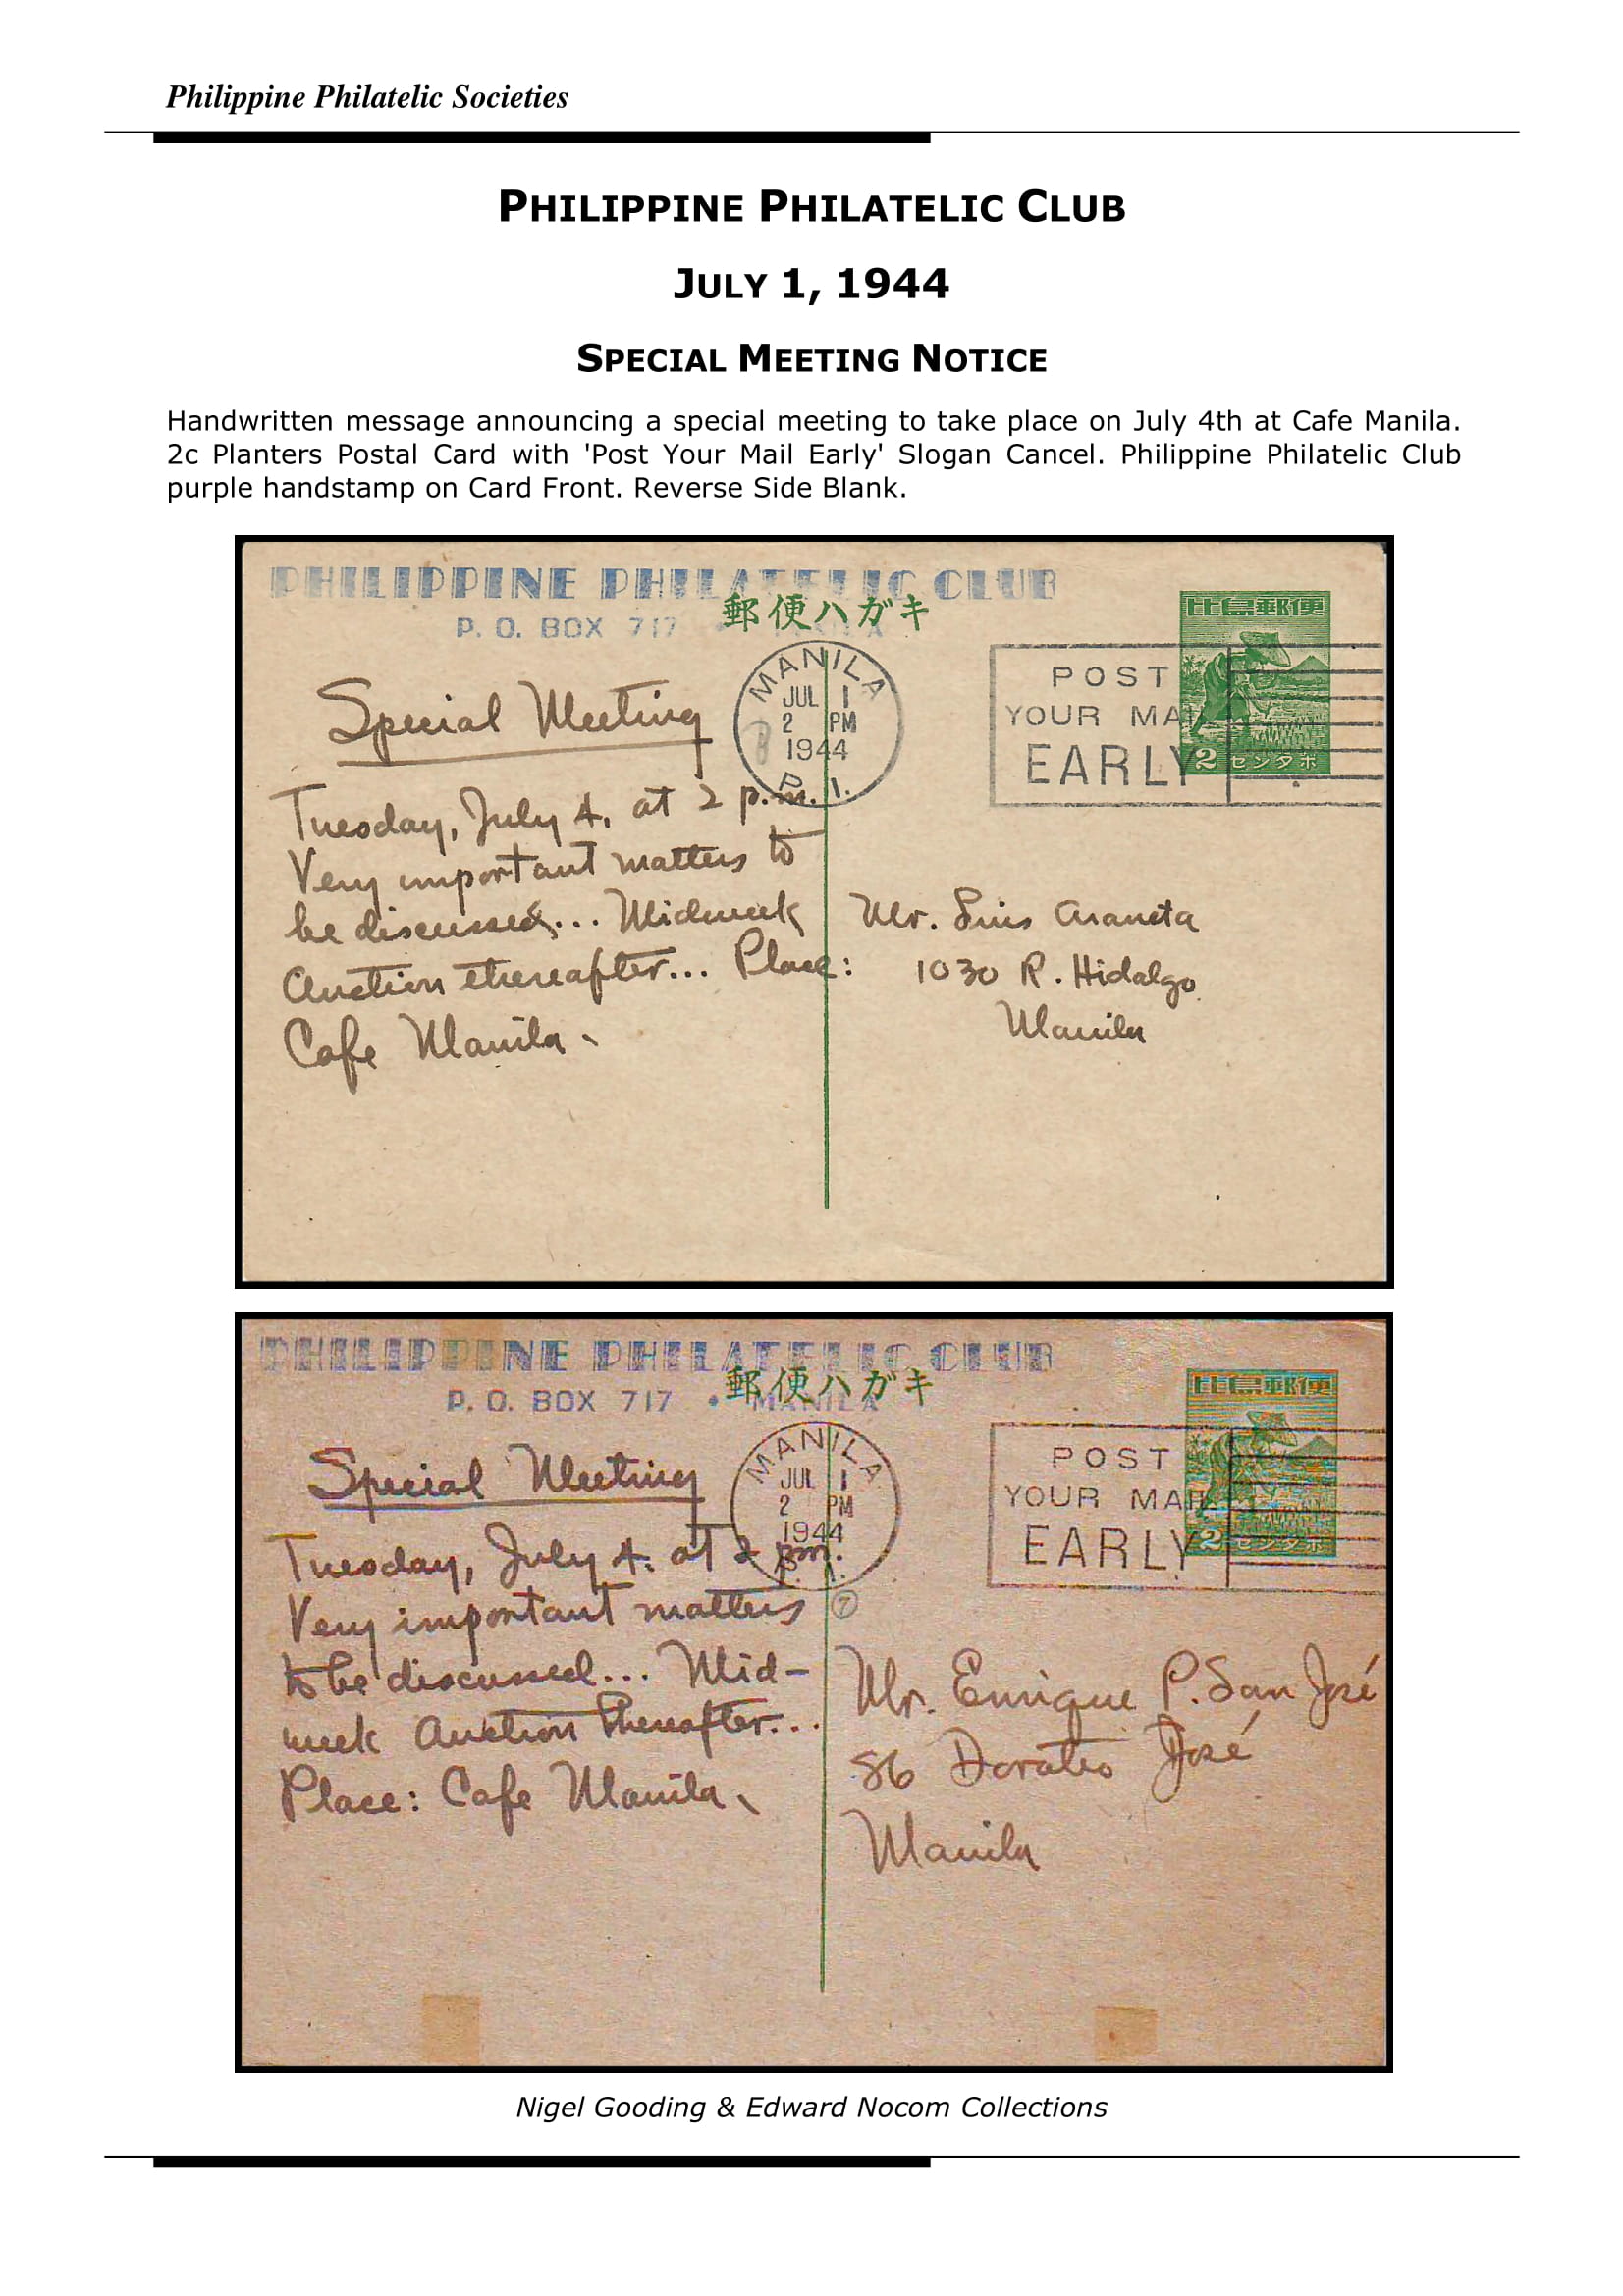 Philippine Philatelic Societies
PHILIPPINE PHILATELIC CLUB
JULY 1, 1944
SPECIAL MEETING NOTICE
Handwritten message announcing a special meeting to take place on July 4th at Cafe Manila.
2c Planters Postal Card with 'Post Your Mail Early' Slogan Cancel. Philippine Philatelic Club
purple handstamp on Card Front. Reverse Side Blank.
PHILIPPINE PHILATELIC CLUB
郵便ハガキ
P. O. BOX 717
比島郵便
2 センタボ
MANILA
JUL 1
2 PM
1944
P. I.
POST
YOUR MAI
EARLY
Special Meeting
Tuesday, July 4, at 2 p.m.
Very important matters to
be discussed... Midweek
Auction thereafter... Place:
Cafe Manila
Mr. Luis Araneta
1030 R. Hidalgo
Manila
PHILIPPINE PHILATELIC CLUB
郵便ハガキ
P. O. BOX 717 • MANILA
比島郵便
2 センタボ
MANILA
JUL 1
2 PM
1944
P. I.
POST
YOUR MAI
EARLY
Special Meeting
Tuesday, July 4. at 2 pm.
Very important matters
to be discussed... Mid-
week Auction thereafter...
Place: Cafe Manila
7
Mr. Enrique P. San José
86 Doroteo José
Manila
Nigel Gooding & Edward Nocom Collections